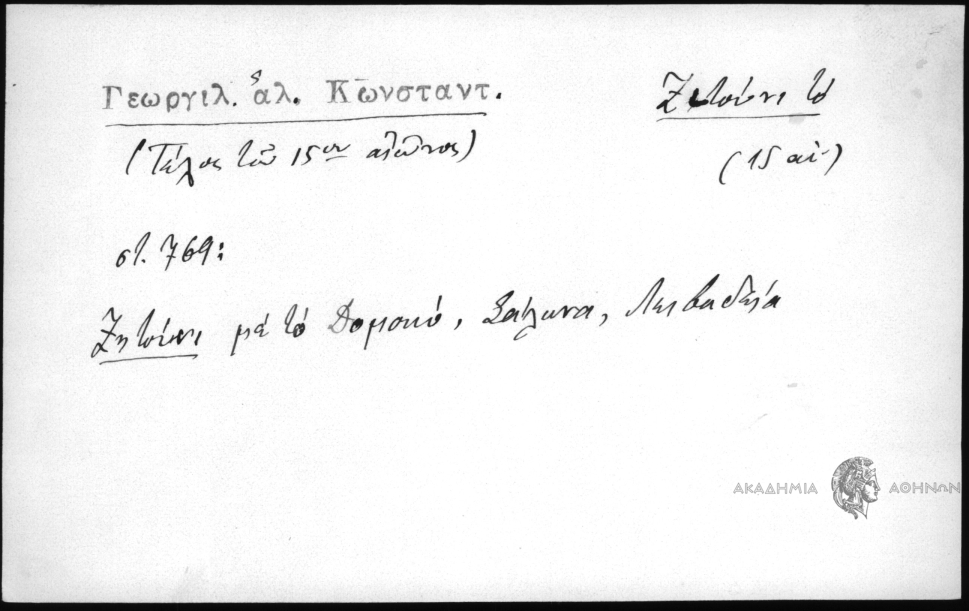 Γεωργιλ. ἁλ. Κωνσταντ.
Ζητούνι τό
(Τέλος τοῦ 15ου αἰῶνος)
(15 αἰ.)
στ. 769:
Ζητούνι μέ τό Δομοκό, Σάλωνα, Λειβαδεία
ΑΚΑΔΗΜΙΑ ΑΘΗΝΩΝ